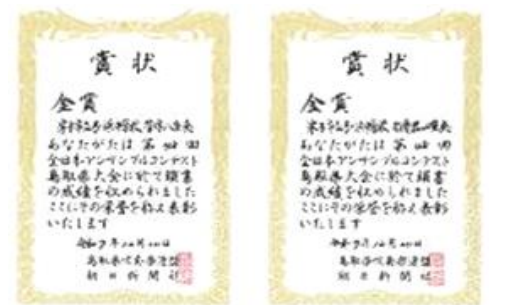 賞状
金賞
あなたがたは第 回
全日本アンサンブルコンテスト
鳥取県大会に於て頭書
の成績を収められました
ここにその栄誉を称え表彰
いたします
鳥取県吹奏楽連盟
朝日新聞社
賞状
金賞
あなたがたは第 回
全日本アンサンブルコンテスト
鳥取県大会に於て頭書
の成績を収められました
ここにその栄誉を称え表彰
いたします
鳥取県吹奏楽連盟
朝日新聞社